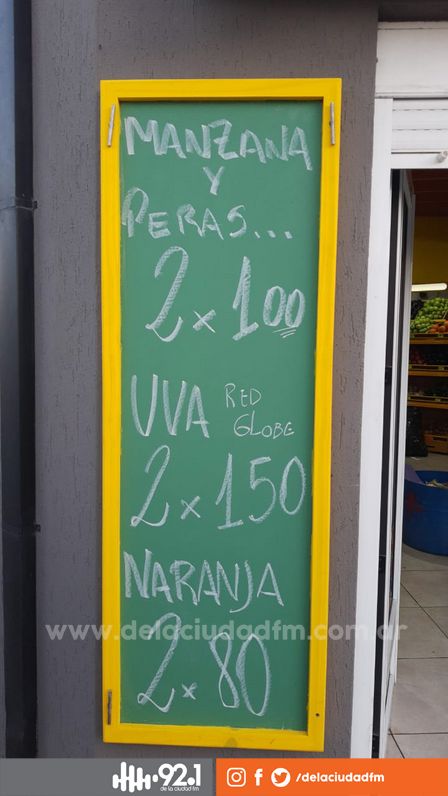 MANZANA
Y
PERAS...
2 x 100
UVA RED GLOBE
2 x 150
NARANJA
2 x 80
www.delaciudadfm.com.ar
92.1
de la ciudad fm
/delaciudadfm